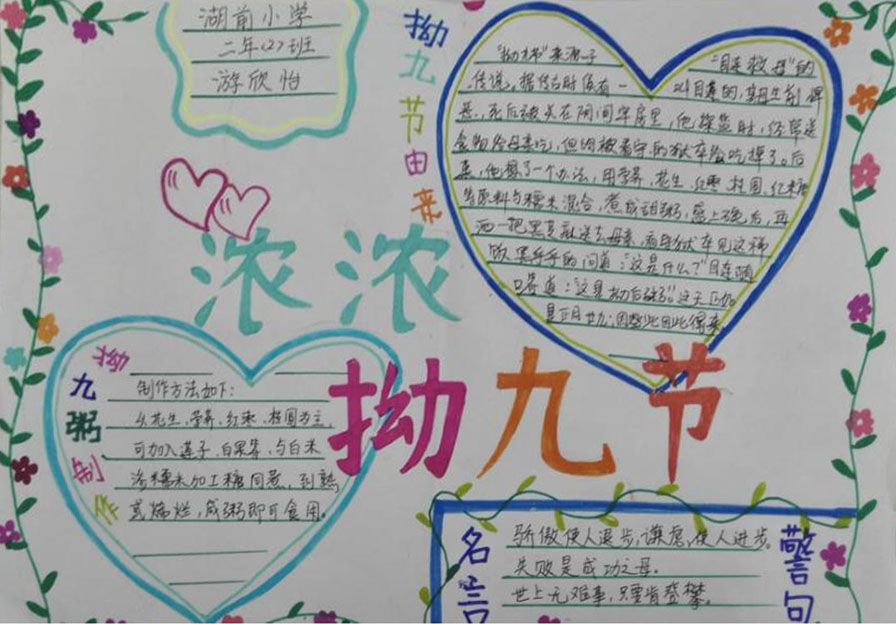 湖前小学
二年(2)班
游欣怡
拗九节由来
"拗九节"来源于"目连救母"的
传说。据传古时候有一个叫目连的,其母生前
恶,死后被关在阴间牢房里,他探监时,经常送
食物给母亲吃,但均被看守的狱卒给吃掉了。后
来,他想了一个办法,用荸荠、花生、红枣、桂圆、红糖
等原料与糯米混合,煮成甜粥,盛上碗后,再
洒一把黑芝麻送去母亲,看守狱卒见这
黑乎乎的问道:"这是什么?"目连随
口答道:"这是拗后粥。"这天正
是正月廿九,因此得来
浓浓
拗九节
拗九粥制作
制作方法如下:
以花生、荸荠、红枣、桂圆为主,
可加入莲子、白果等,与白米
糯米加工糖同煮,到熟
或烯烂,成粥即可食用。
名言警句
骄傲使人退步,谦虚使人进步。
失败是成功之母。
世上无难事,只要肯登攀。